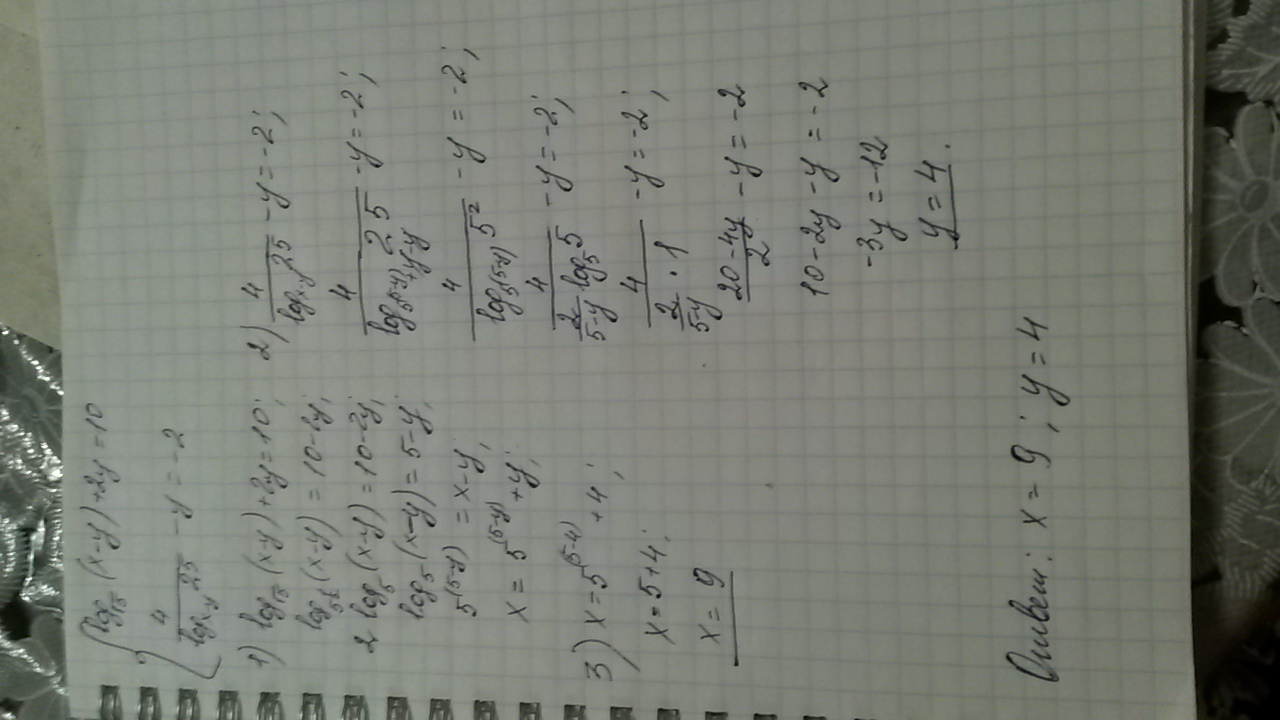 { log_√5 (x-y)+2y=10
4/log_x-y 25 -y = -2
1) log_√5 (x-y)+2y=10;
log_5^½ (x-y) = 10-2y;
2 log_5 (x-y) = 10-2y;
log_5 (x-y) = 5-y;
5^(5-y) = x-y;
x = 5^(5-y) +y;
3) x=5^(5-4) +4;
x=5+4;
x = 9
2) 4/log_x-y 25 -y=-2;
4/log_5^(5-y)+y-y 25 -y=-2;
4/log_5^(5-y) 5² -y = -2;
4/(2/5-y log_5 5) -y=-2;
4/(2/5-y · 1) -y=-2;
20-4y/2 -y = -2
10-2y-y = -2
-3y=-12
y=4.
Ответ: x = 9; y = 4